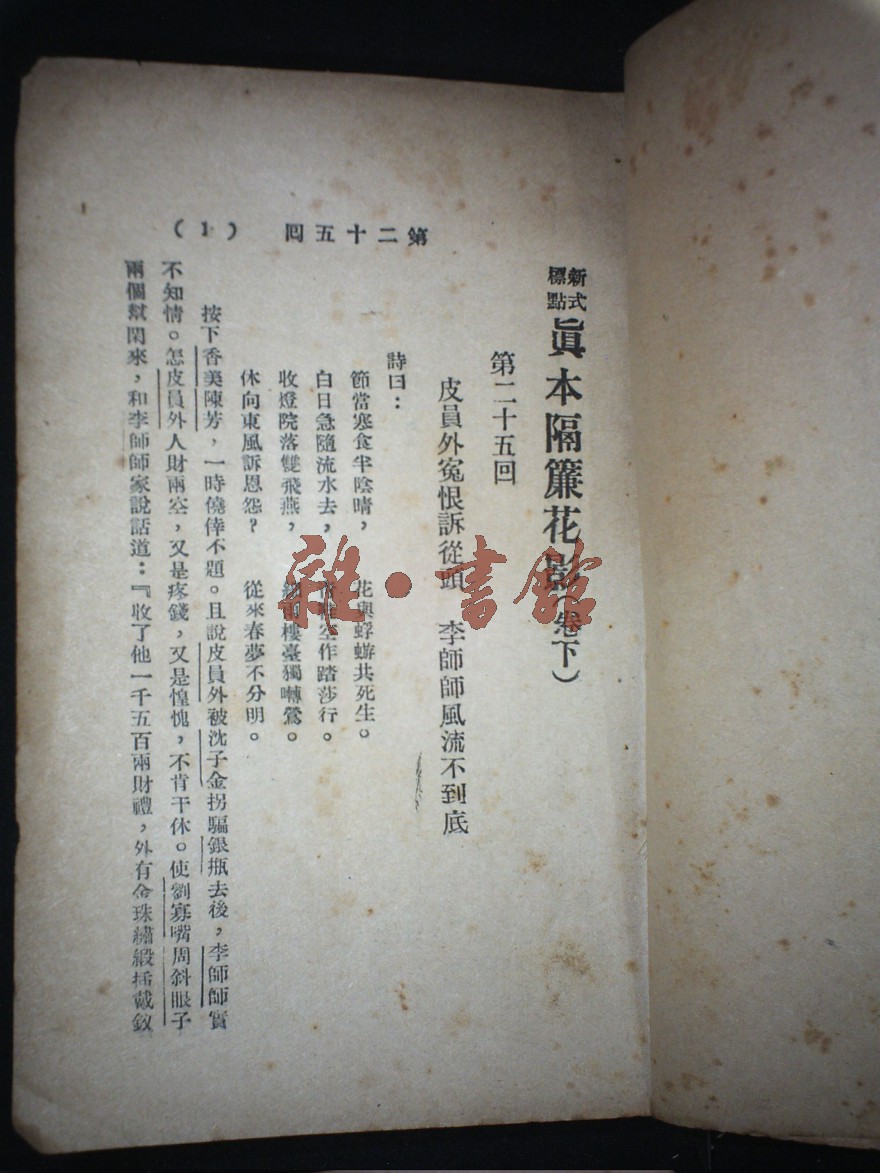 第二十五回 (1)
新式標點 眞本隔簾花影(卷下)
第二十五回
皮員外寃恨訴從頭 李師師風流不到底
詩曰:
節當寒食半陰晴, 花與蜉蝣共死生。
白日急隨流水去, 作踏莎行。
收燈院落雙飛燕, 樓臺獨囀鶯。
休向東風訴恩怨? 從來春夢不分明。
按下香美陳芳,一時僥倖不題。且說皮員外被沈子金拐騙銀瓶去後,李師師實
不知情。怎皮員外人財兩空,又是疼錢,又是惶愧,不肯干休。使劉寡嘴周斜眼子
兩個幫閑來,和李師師家說話道:『收了他一千五百兩財禮,外有金珠繡緞插戴釵
雜·書館